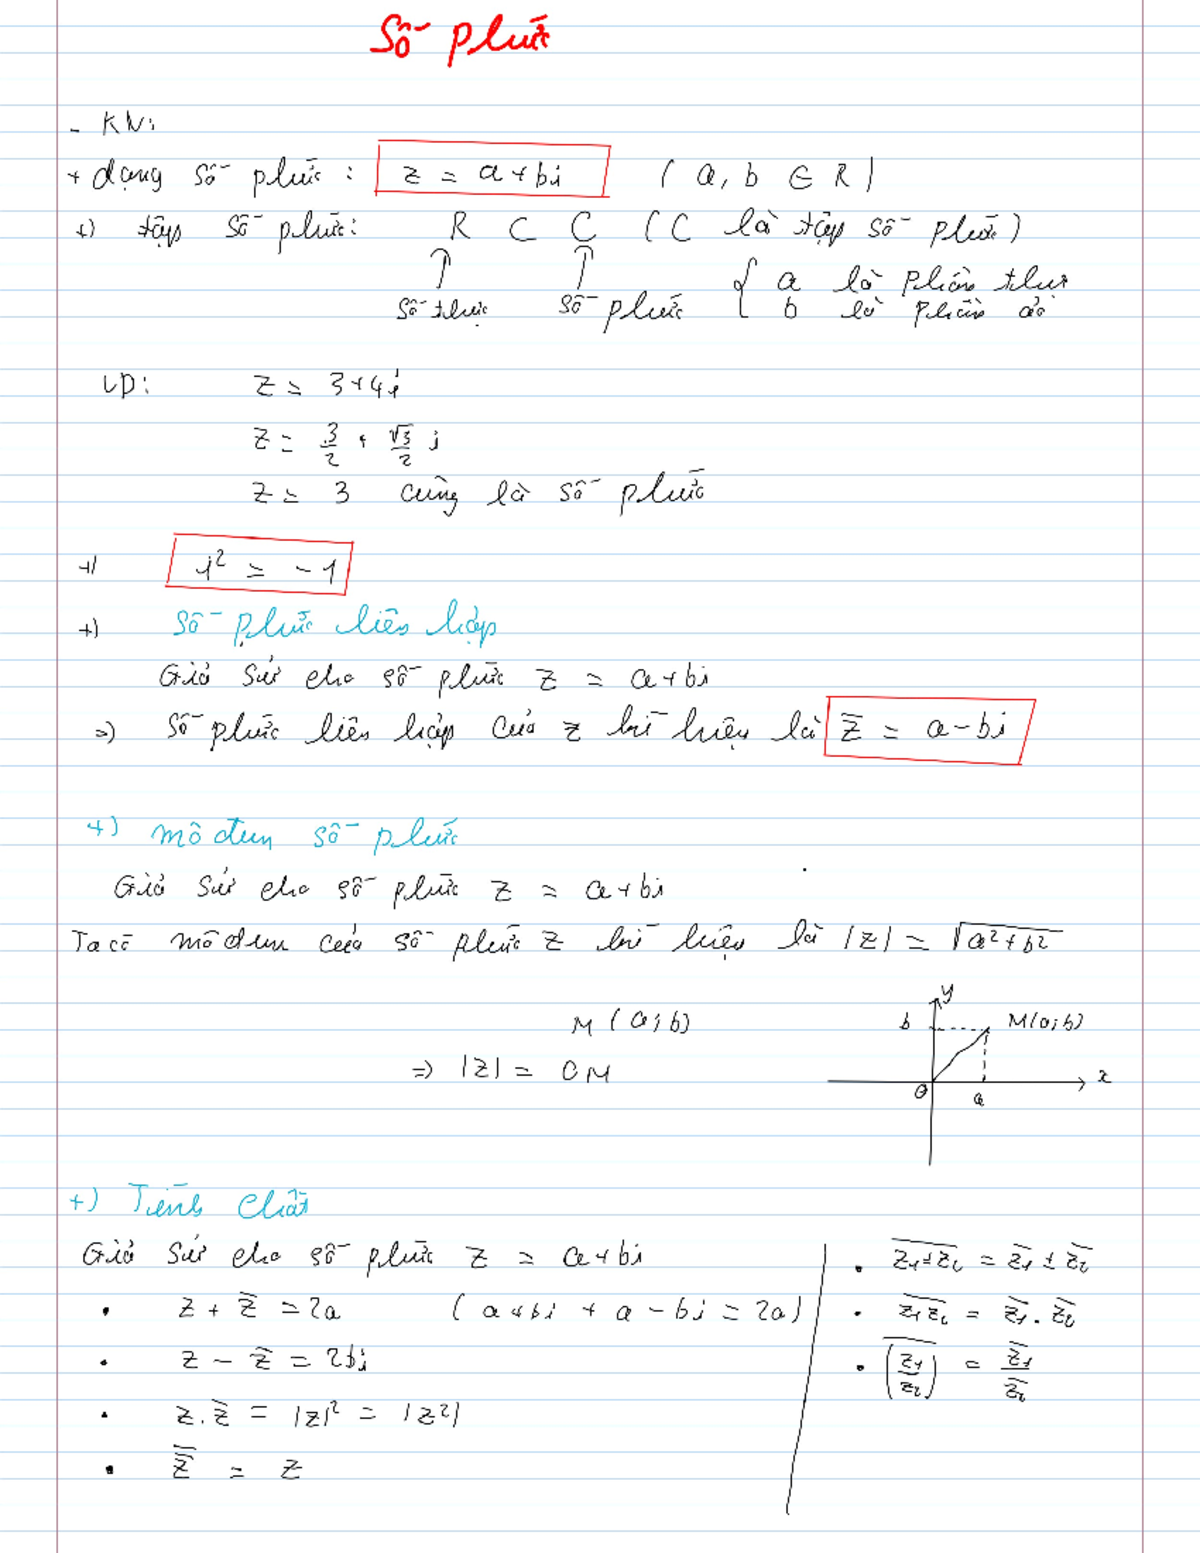 Số phức
- KN:
+ dạng số phức : z = a + bi ( a, b ∈ R )
+) tập số phức: R ⊂ C ( C là tập số phức )
↑ ↑ { a là phần thực
số thực số phức b là phần ảo
VD: z = 3 + 4i
z = 3/2 + √3/2 i
z = 3 cũng là số phức
+) i² = -1
+) Số phức liên hợp
Giả sử cho số phức z = a + bi
=) số phức liên hợp của z kí hiệu là z̅ = a - bi
+) mô đun số phức
Giả sử cho số phức z = a + bi
Ta có mô đun của số phức z kí hiệu là |z| = √(a² + b²)
M ( a ; b )
=) |z| = OM
y
b M(a;b)
O a x
+) Tính chất
Giả sử cho số phức z = a + bi
• z + z̅ = 2a ( a + bi + a - bi = 2a )
• z - z̅ = 2bi
• z . z̅ = |z|² = |z²|
• z̿ = z
• \overline{z₁ ± z₂} = z̅₁ ± z̅₂
• \overline{z₁z₂} = z̅₁ . z̅₂
• \overline{(z₁/z₂)} = z̅₁/z̅₂